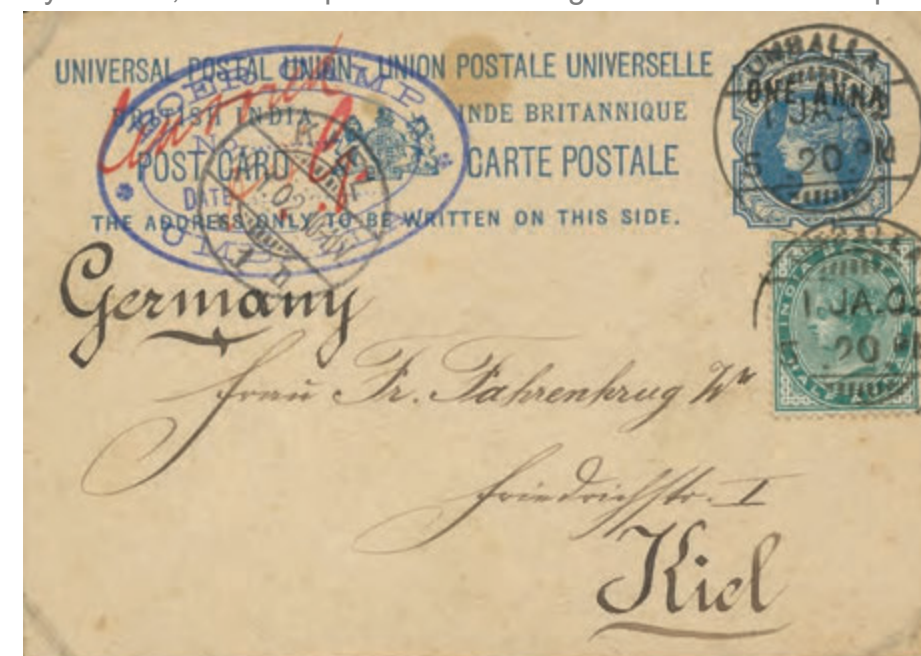 UNIVERSAL POSTAL UNION UNION POSTALE UNIVERSELLE
BRITISH INDIA INDE BRITANNIQUE
POST CARD CARTE POSTALE
THE ADDRESS ONLY TO BE WRITTEN ON THIS SIDE.
UMBALLA
ONE ANNA
1 JA.02
5 20 PM
BOER CAMP
No
DATE
KIEL
INDIA
1 JA.0
5 20 PM
Germany
Frau Fr. Fahrenkrug Ww
Friedrichstr. I
Kiel